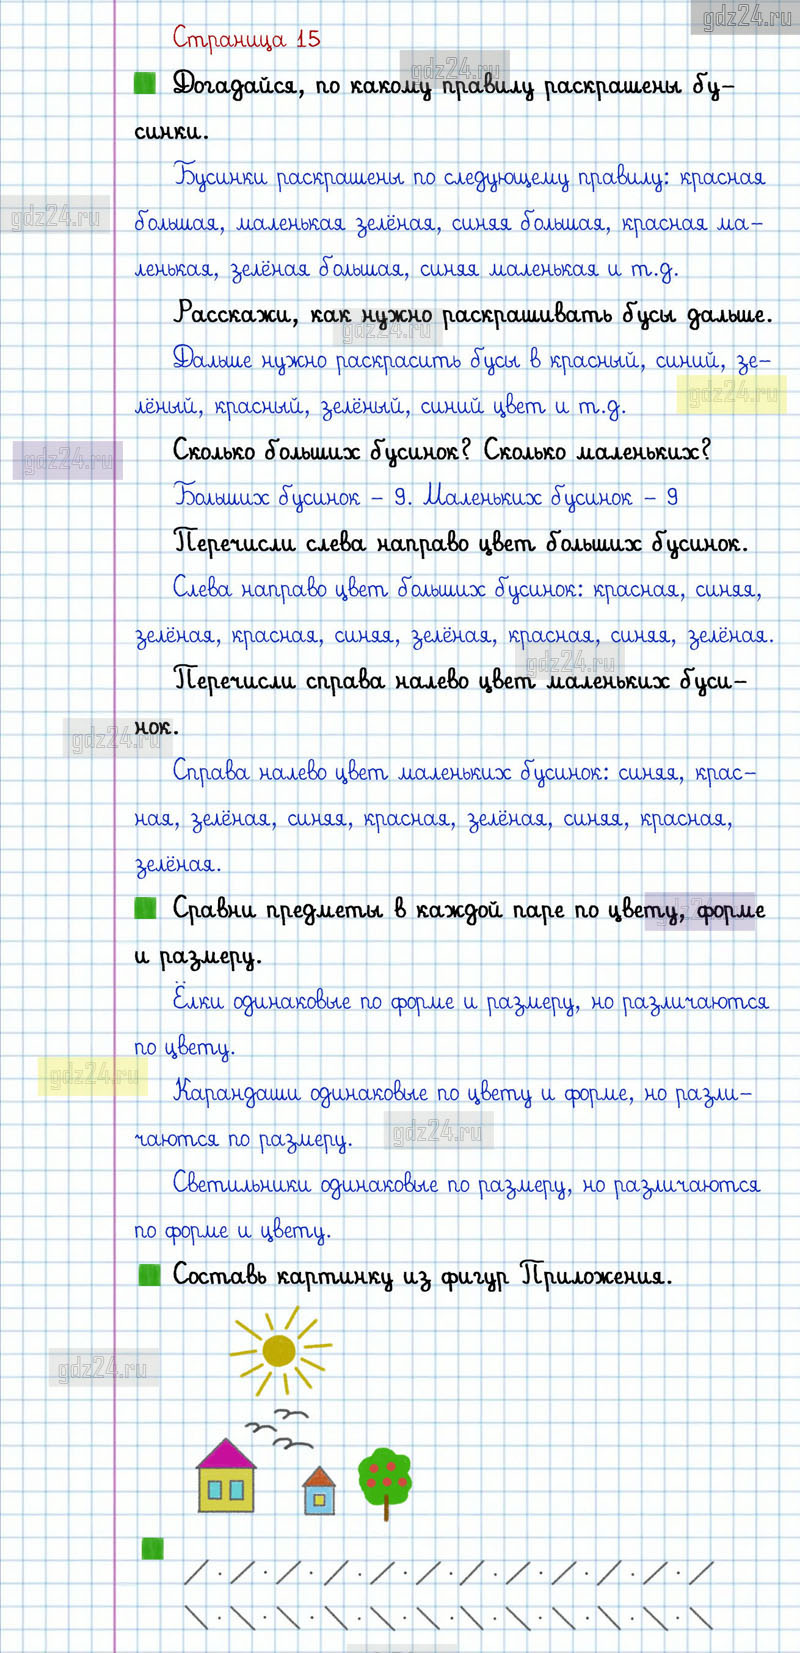 gdz24.ru
Страница 15
gdz24.ru
Догадайся, по какому правилу раскрашены бу-
синки.
Бусинки раскрашены по следующему правилу: красная
gdz24.ru
большая, маленькая зелёная, синяя большая, красная ма-
ленькая, зелёная большая, синяя маленькая и т.д.
Расскажи, как нужно раскрашивать бусы дальше.
gdz24.ru
Дальше нужно раскрасить бусы в красный, синий, зе-
gdz24.ru
лёный, красный, зелёный, синий цвет и т.д.
Сколько больших бусинок? Сколько маленьких?
gdz24.ru
Больших бусинок – 9. Маленьких бусинок – 9
Перечисли слева направо цвет больших бусинок.
Слева направо цвет больших бусинок: красная, синяя,
зелёная, красная, синяя, зелёная, красная, синяя, зелёная.
gdz24.ru
Перечисли справа налево цвет маленьких буси-
нок.
gdz24.ru
Справа налево цвет маленьких бусинок: синяя, крас-
ная, зелёная, синяя, красная, зелёная, синяя, красная,
зелёная.
Сравни предметы в каждой паре по цвету, форме
gdz24.ru
и размеру.
Ёлки одинаковые по форме и размеру, но различаются
по цвету.
gdz24.ru
Карандаши одинаковые по цвету и форме, но разли-
gdz24.ru
чаются по размеру.
Светильники одинаковые по размеру, но различаются
по форме и цвету.
Составь картинку из фигур Приложения.
gdz24.ru